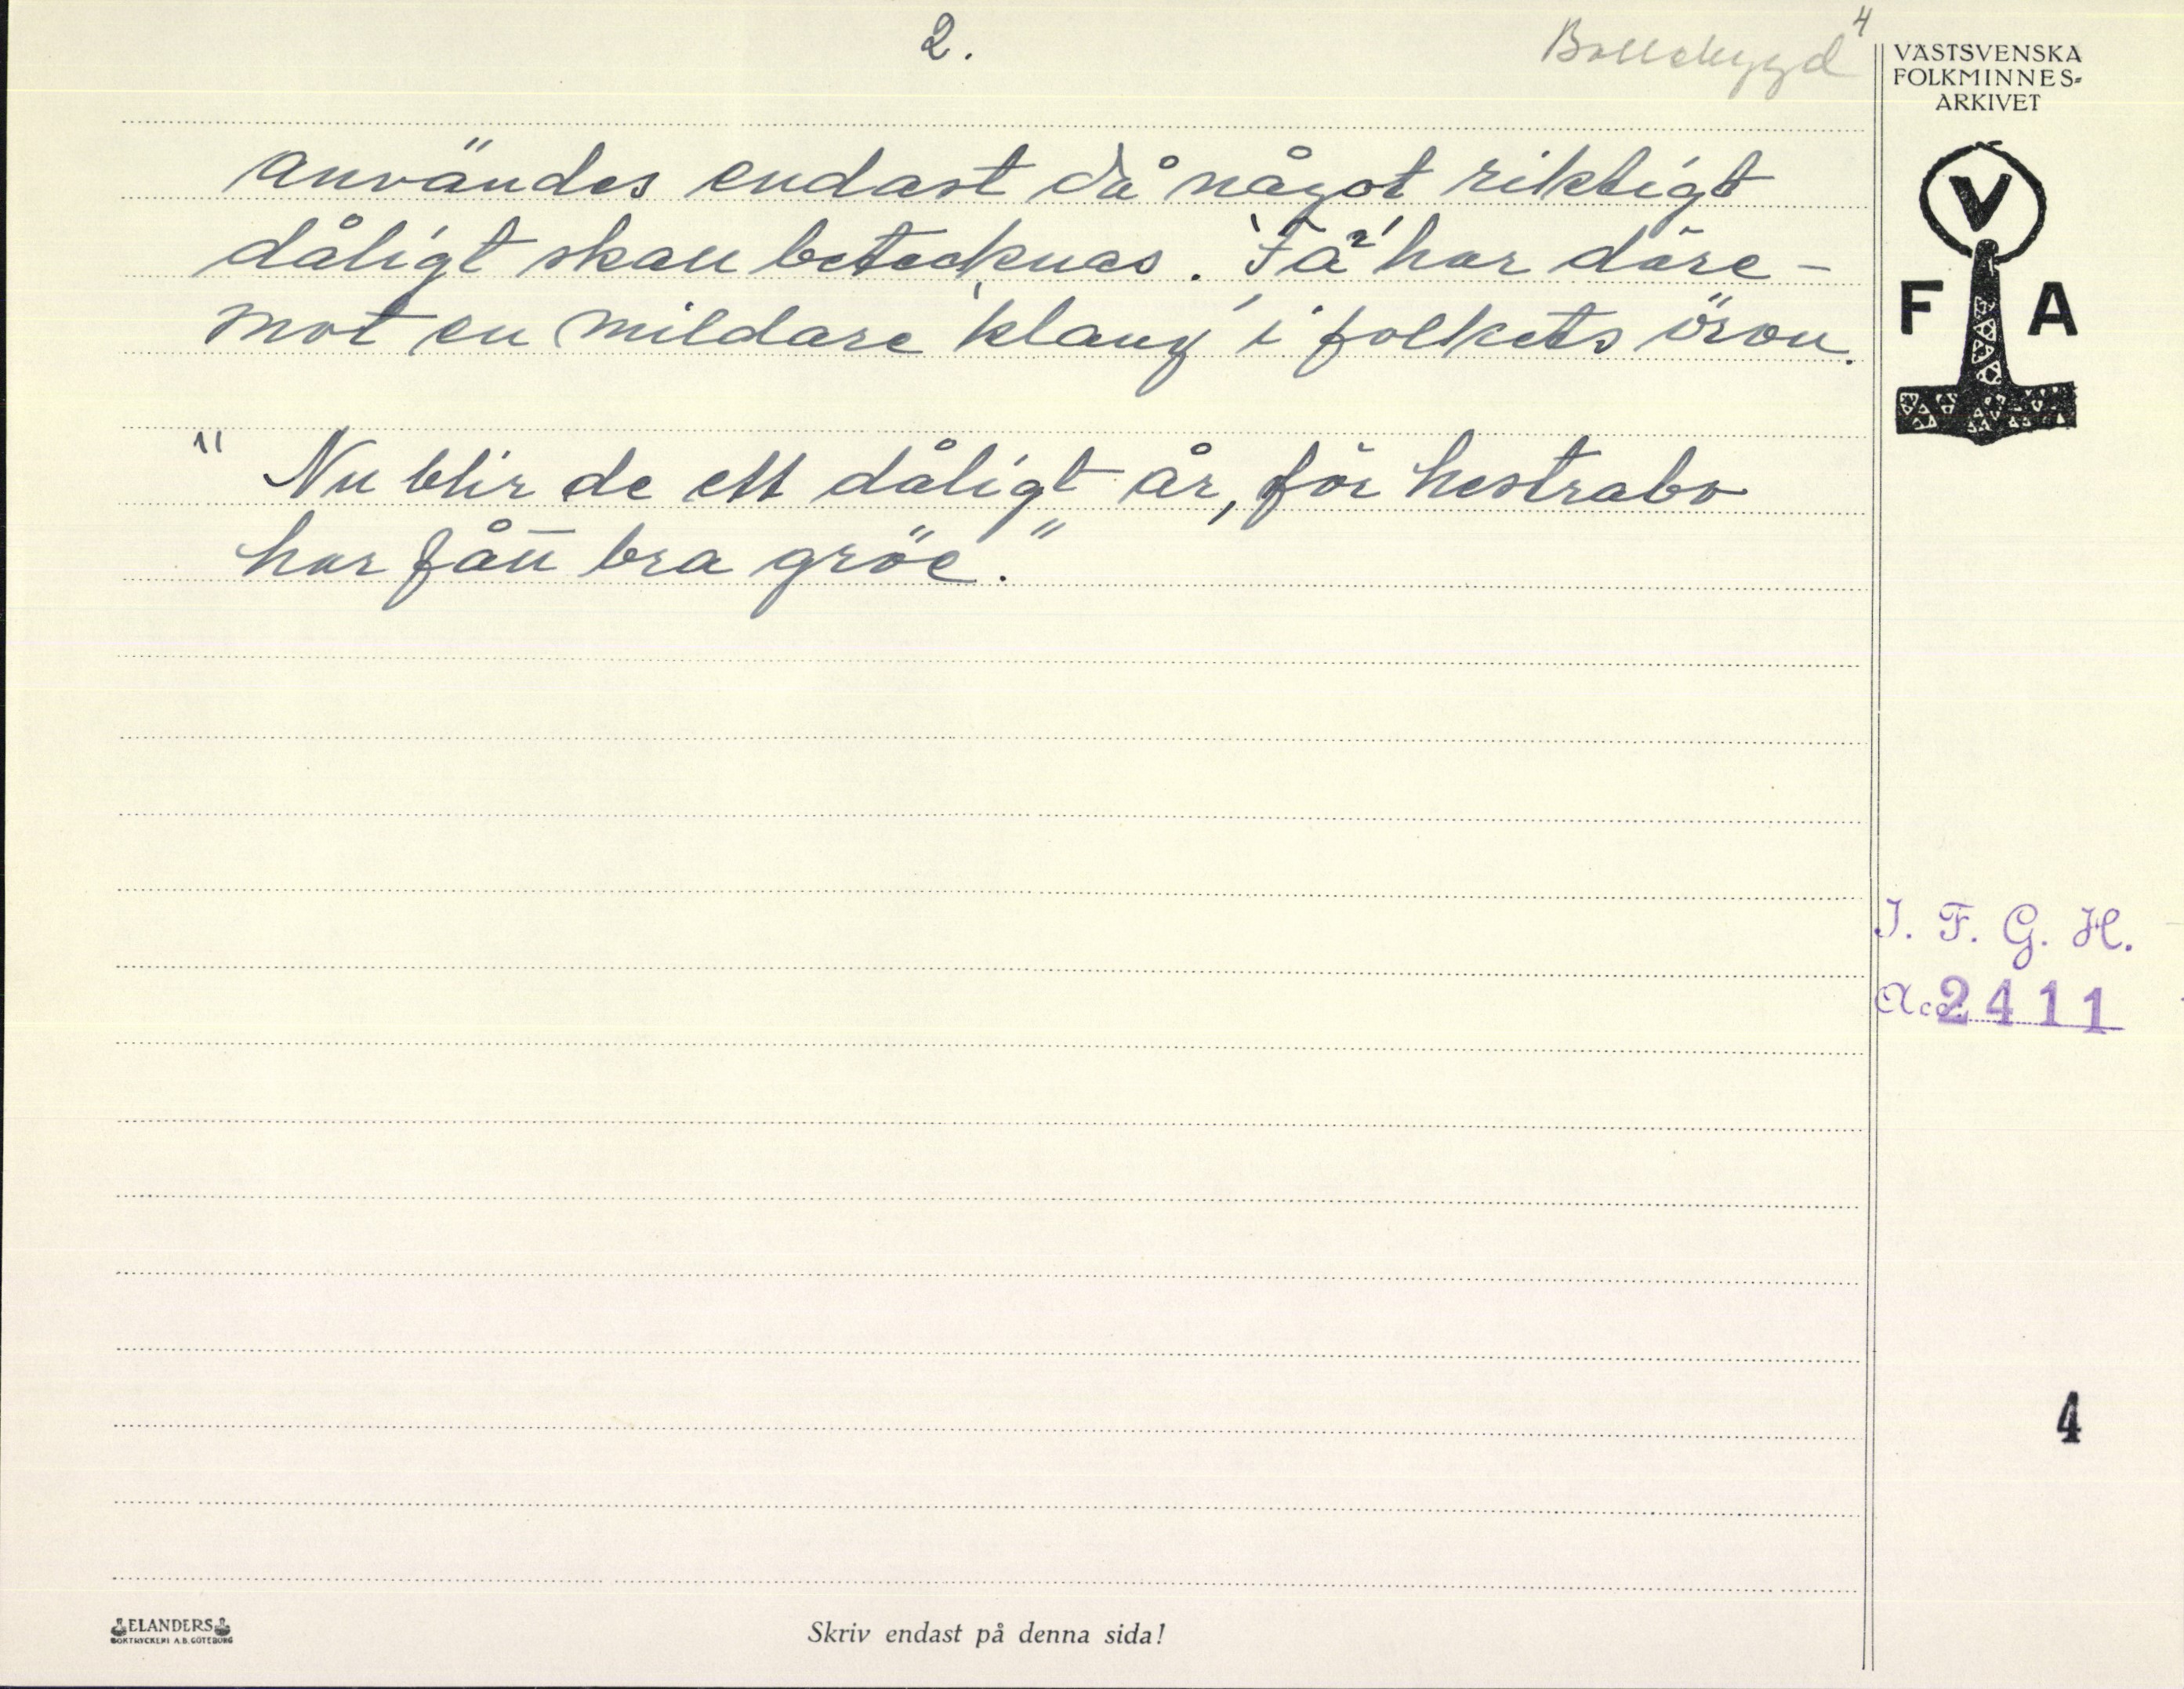 2.
Bollebygd
4
VÄSTSVENSKA
FOLKMINNES=
ARKIVET
V
F A
användes endast då något riktigt
dåligt skall betecknas. 'Fä²' har däre-
mot en mildare 'klang' i folkets öron.
" Nu blir de ett dåligt år, för hestrabo
har fått bra gröe."
I. F. G. H.
Acc. 2411
4
ELANDERS
BOKTRYCKERI A.B. GÖTEBORG
Skriv endast på denna sida!